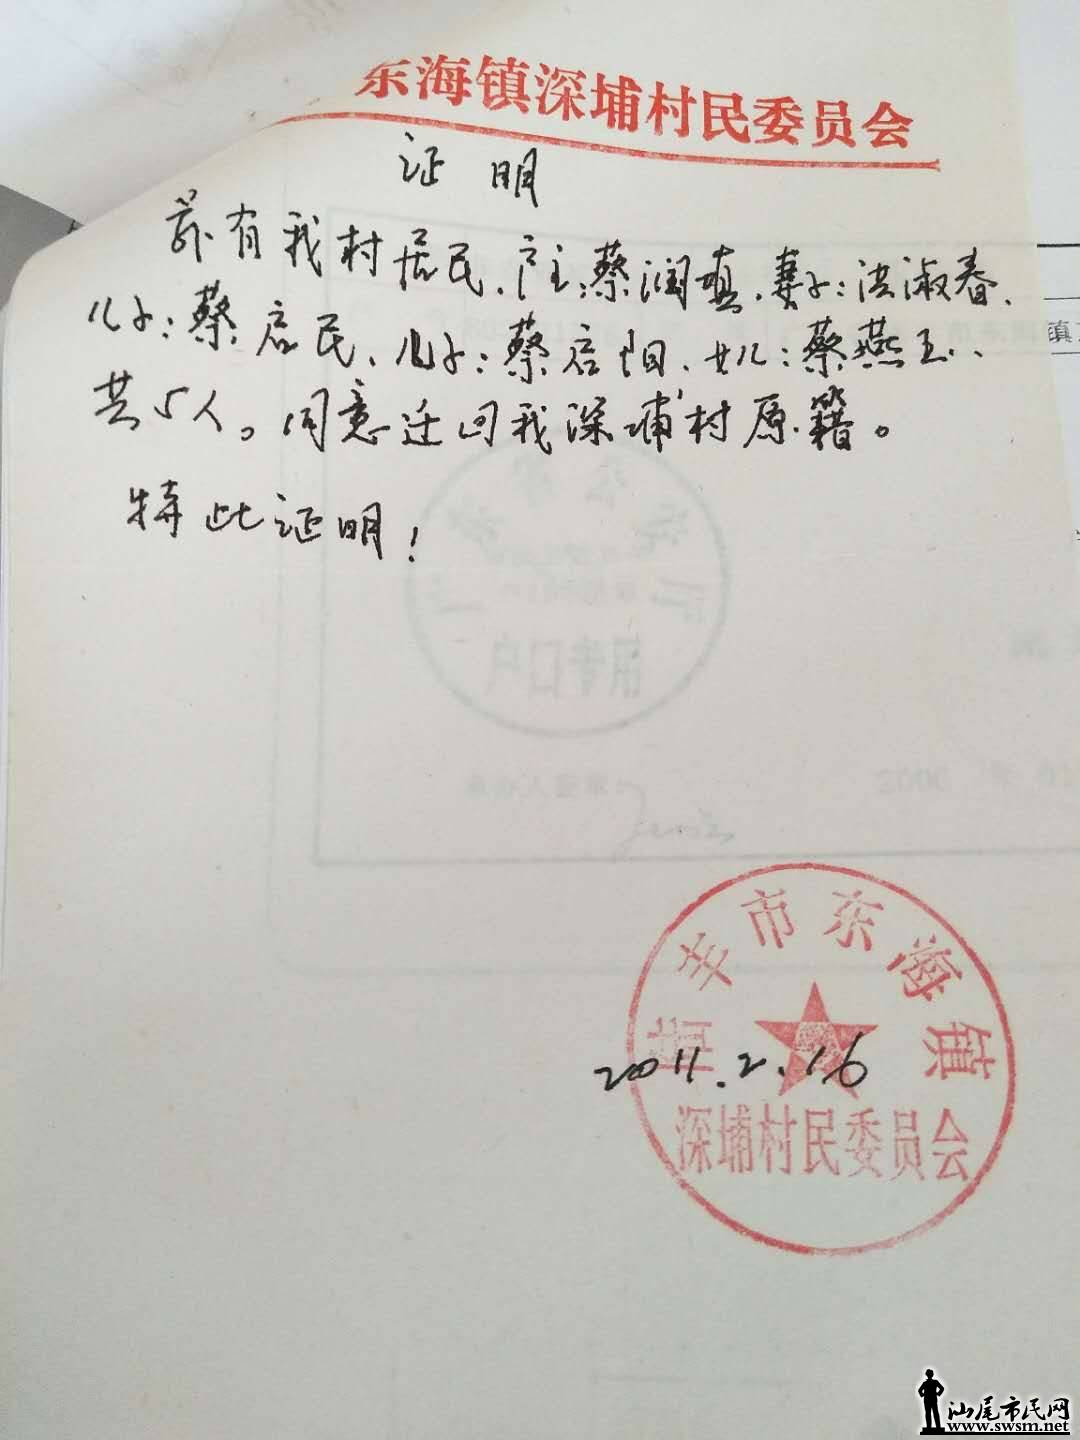 东海镇深埔村民委员会
证明
兹有我村居民、户主:蔡润填、妻子:洪淑春、
儿子:蔡启民、儿子:蔡启阳、女儿:蔡燕玉、
共5人。同意迁回我深埔村原籍。
特此证明!
户口专用
陆丰市东海镇
2011.2.16
深埔村民委员会
镇
汕尾市民网
www.swsm.net